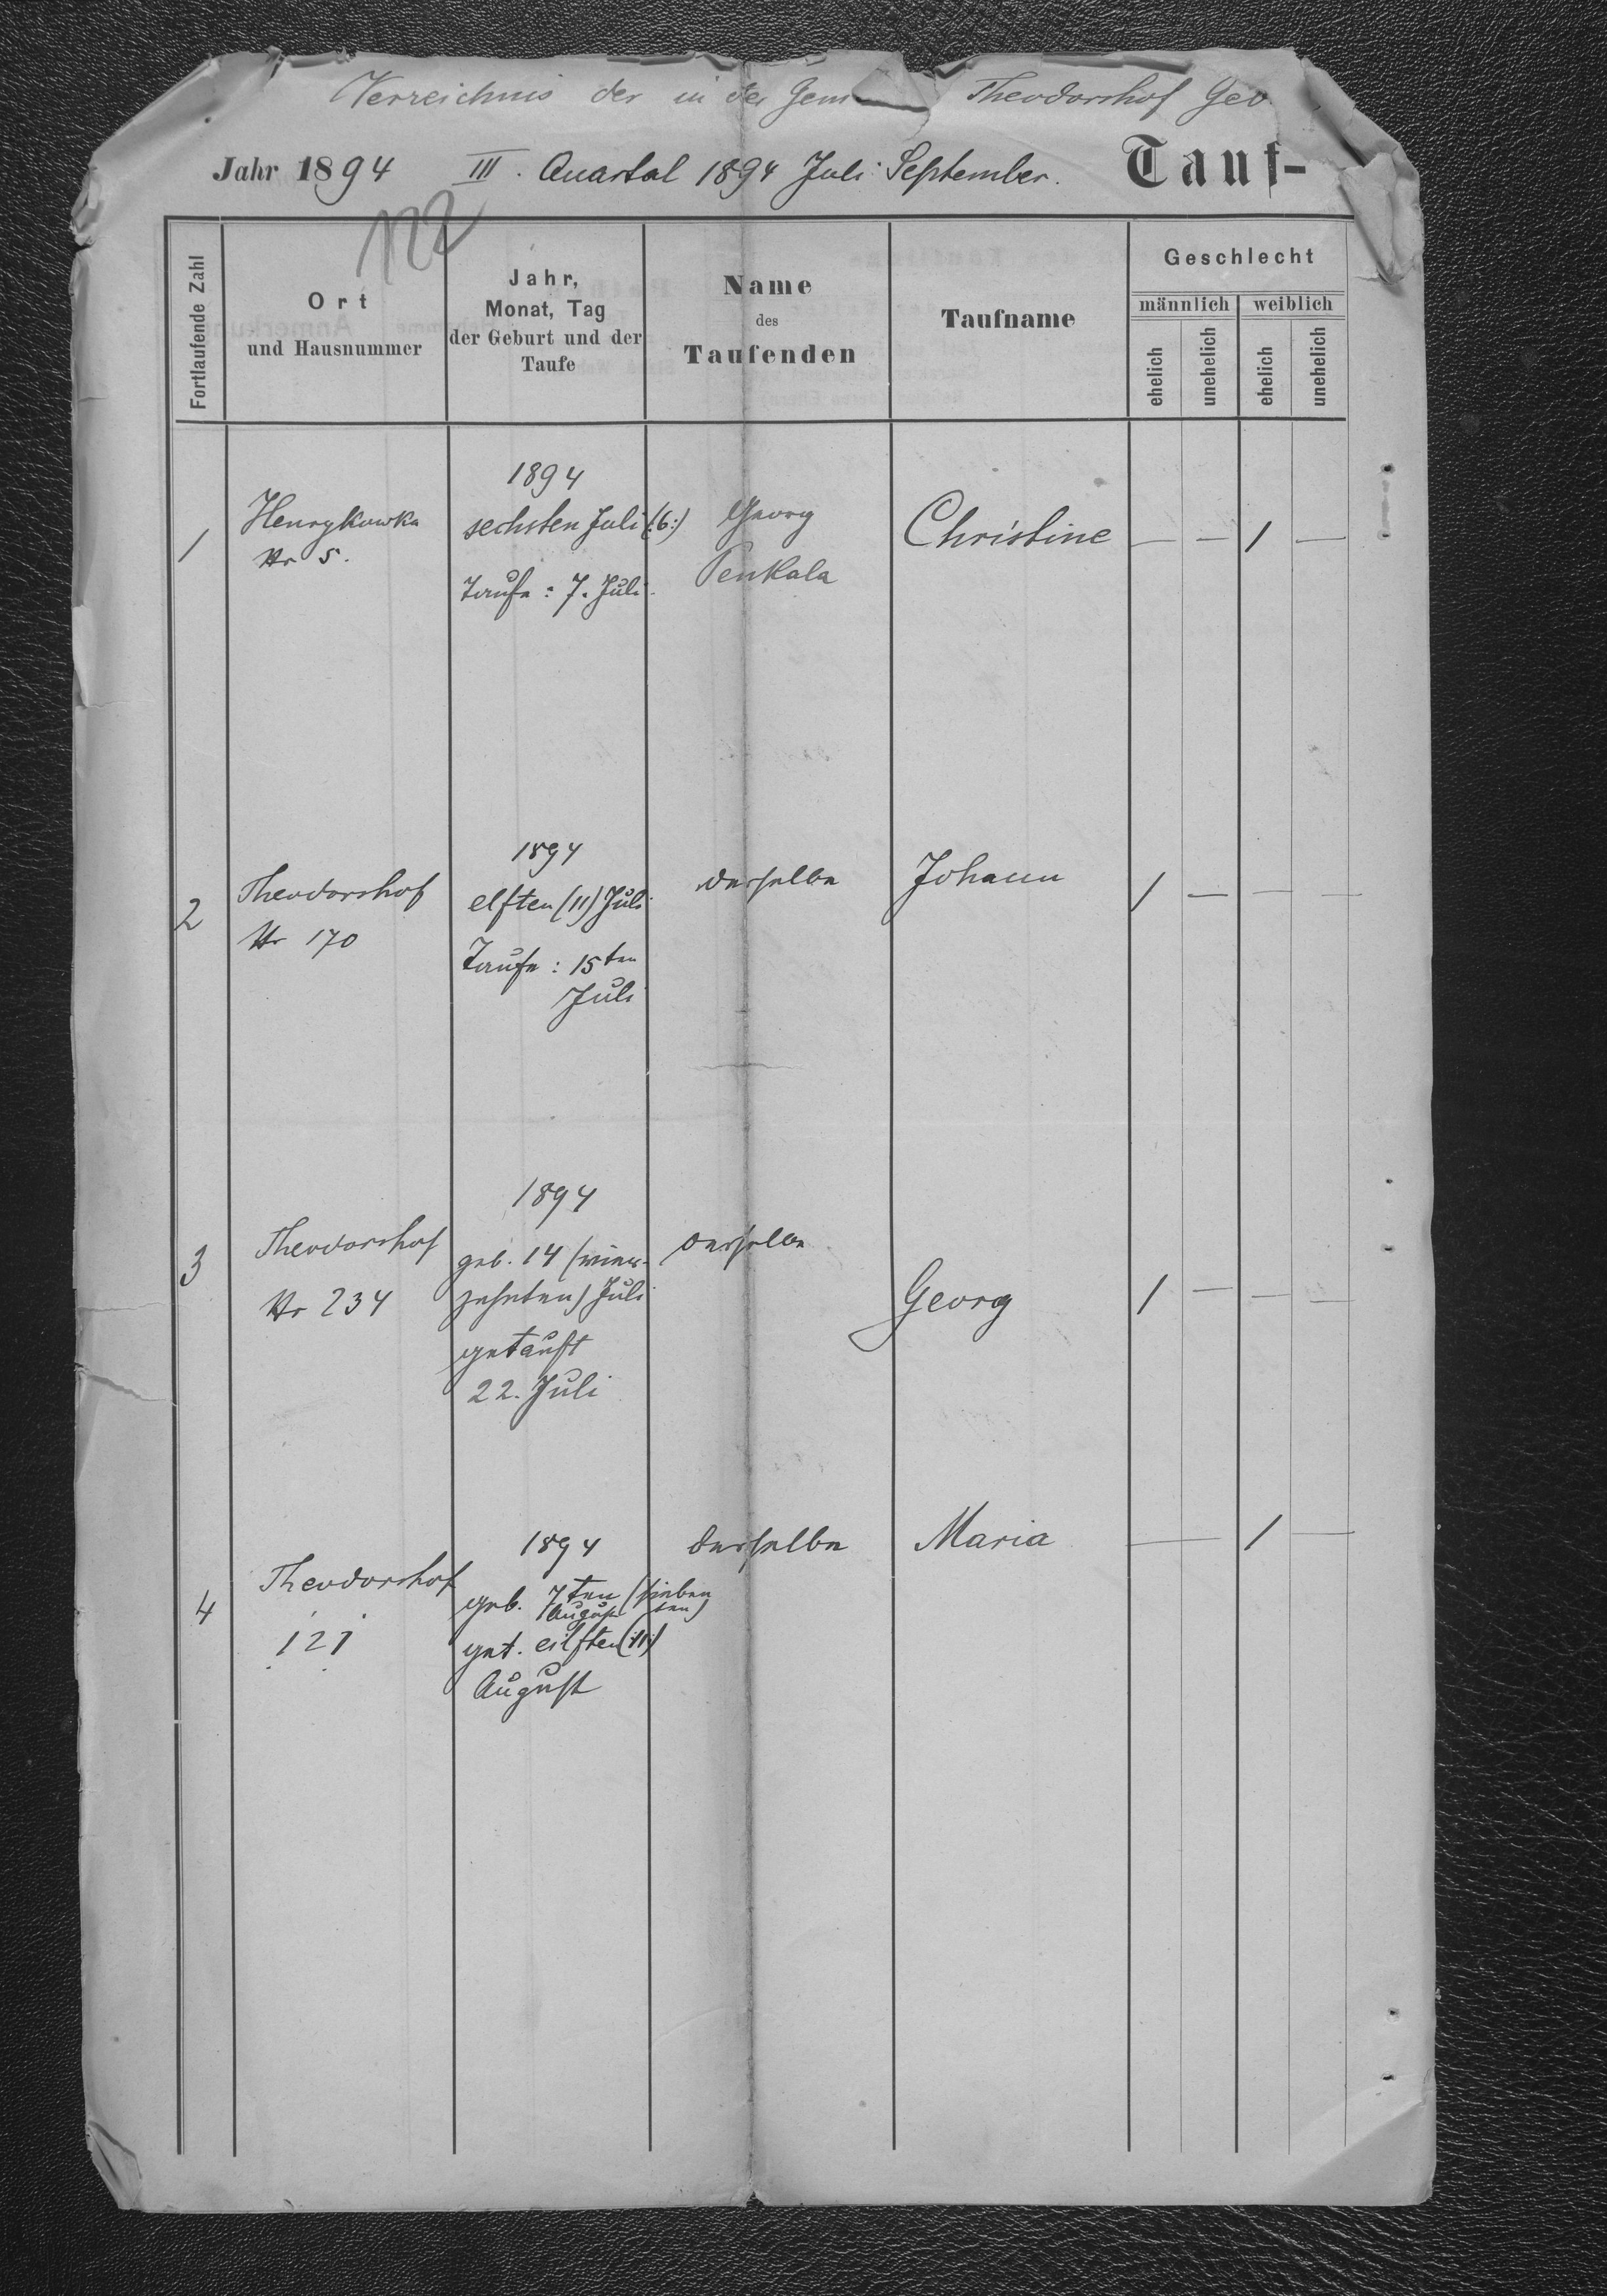 Verzeichnis der in der Gem Theodorshof Geb
Jahr 1894 III. Quartal 1894 Juli September. Tauf-
122
Fortlaufende Zahl
Ort
und Hausnummer
Jahr,
Monat, Tag
der Geburt und der
Taufe
Name
des
Taufenden
Taufname
Geschlecht
männlich weiblich
ehelich unehelich ehelich unehelich
1894
1 Henrykowka sechsten Juli (:6:) Georg Christine — — 1 —
Nr 5. Penkala
Taufe: 7. Juli.
1894
2 Theodorshof elften (11) Juli derselbe Johann 1 — — —
Nr 170
Taufe: 15ten
Juli
1894
3 Theodorshof geb. 14 (vier- derselbe
Nr 234 zehnten) Juli Georg 1 — — —
getauft
22. Juli
1894 derselbe Maria — 1 —
4 Theodorshof geb. 7ten (sieben
August ten)
121 get. eilften (11)
August